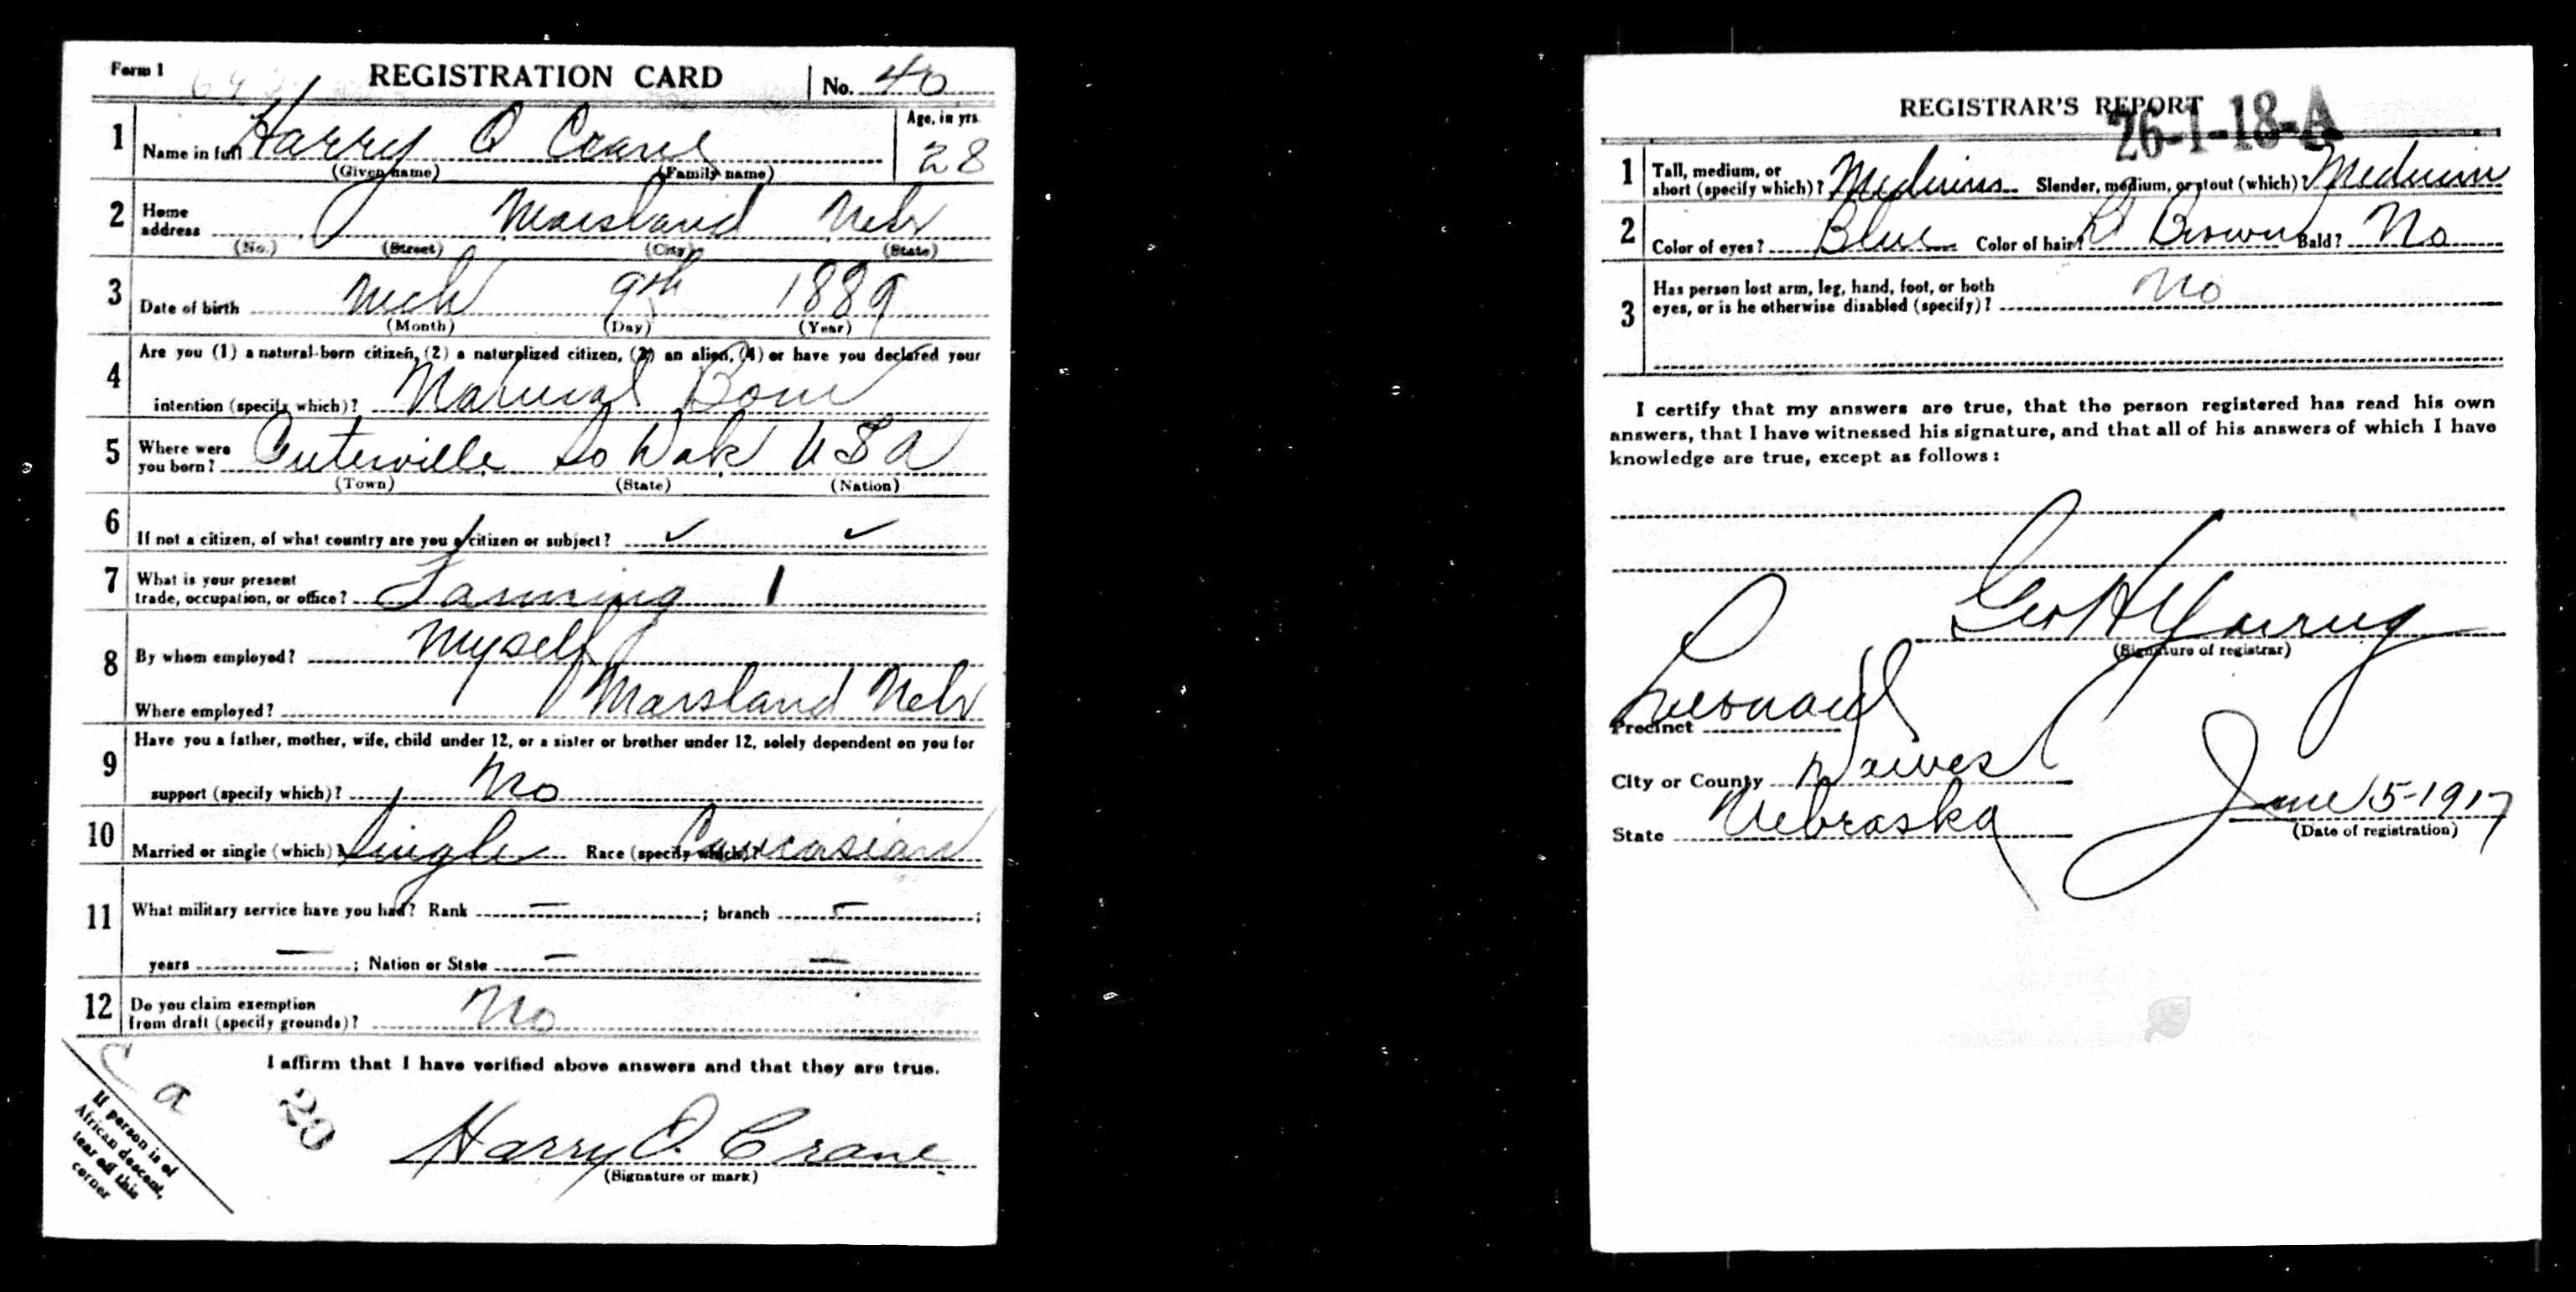 Form 1 REGISTRATION CARD No. 40
1 Name in full Harry O Crane Age, in yrs. 28
(Given name) (Family name)
2 Home address Marsland Nebr
(No.) (Street) (City) (State)
3 Date of birth Mch 9th 1889
(Month) (Day) (Year)
4 Are you (1) a natural-born citizen, (2) a naturalized citizen, (3) an alien, (4) or have you declared your
intention (specify which)? Natural Born
5 Where were you born? Centerville So Dak USA
(Town) (State) (Nation)
6 If not a citizen, of what country are you a citizen or subject? ✓ ✓
7 What is your present trade, occupation, or office? Farming 1
8 By whom employed? Myself
Where employed? Marsland Nebr
9 Have you a father, mother, wife, child under 12, or a sister or brother under 12, solely dependent on you for
support (specify which)? No
10 Married or single (which)? Single Race (specify which)? Caucasian
11 What military service have you had? Rank — ; branch — ;
years — ; Nation or State — —
12 Do you claim exemption from draft (specify grounds)? No
I affirm that I have verified above answers and that they are true.
C a
20
If person is of
African descent,
tear off this
corner
Harry O. Crane
(Signature or mark)
REGISTRAR'S REPORT
26-1-18-A
1 Tall, medium, or short (specify which)? Medium Slender, medium, or stout (which)? Medium
2 Color of eyes? Blue Color of hair? Lt Brown Bald? No
3 Has person lost arm, leg, hand, foot, or both
eyes, or is he otherwise disabled (specify)? No
I certify that my answers are true, that the person registered has read his own
answers, that I have witnessed his signature, and that all of his answers of which I have
knowledge are true, except as follows:
Geo H Young
(Signature of registrar)
Precinct Leonard
City or County Dawes
State Nebraska
June 5-1917
(Date of registration)